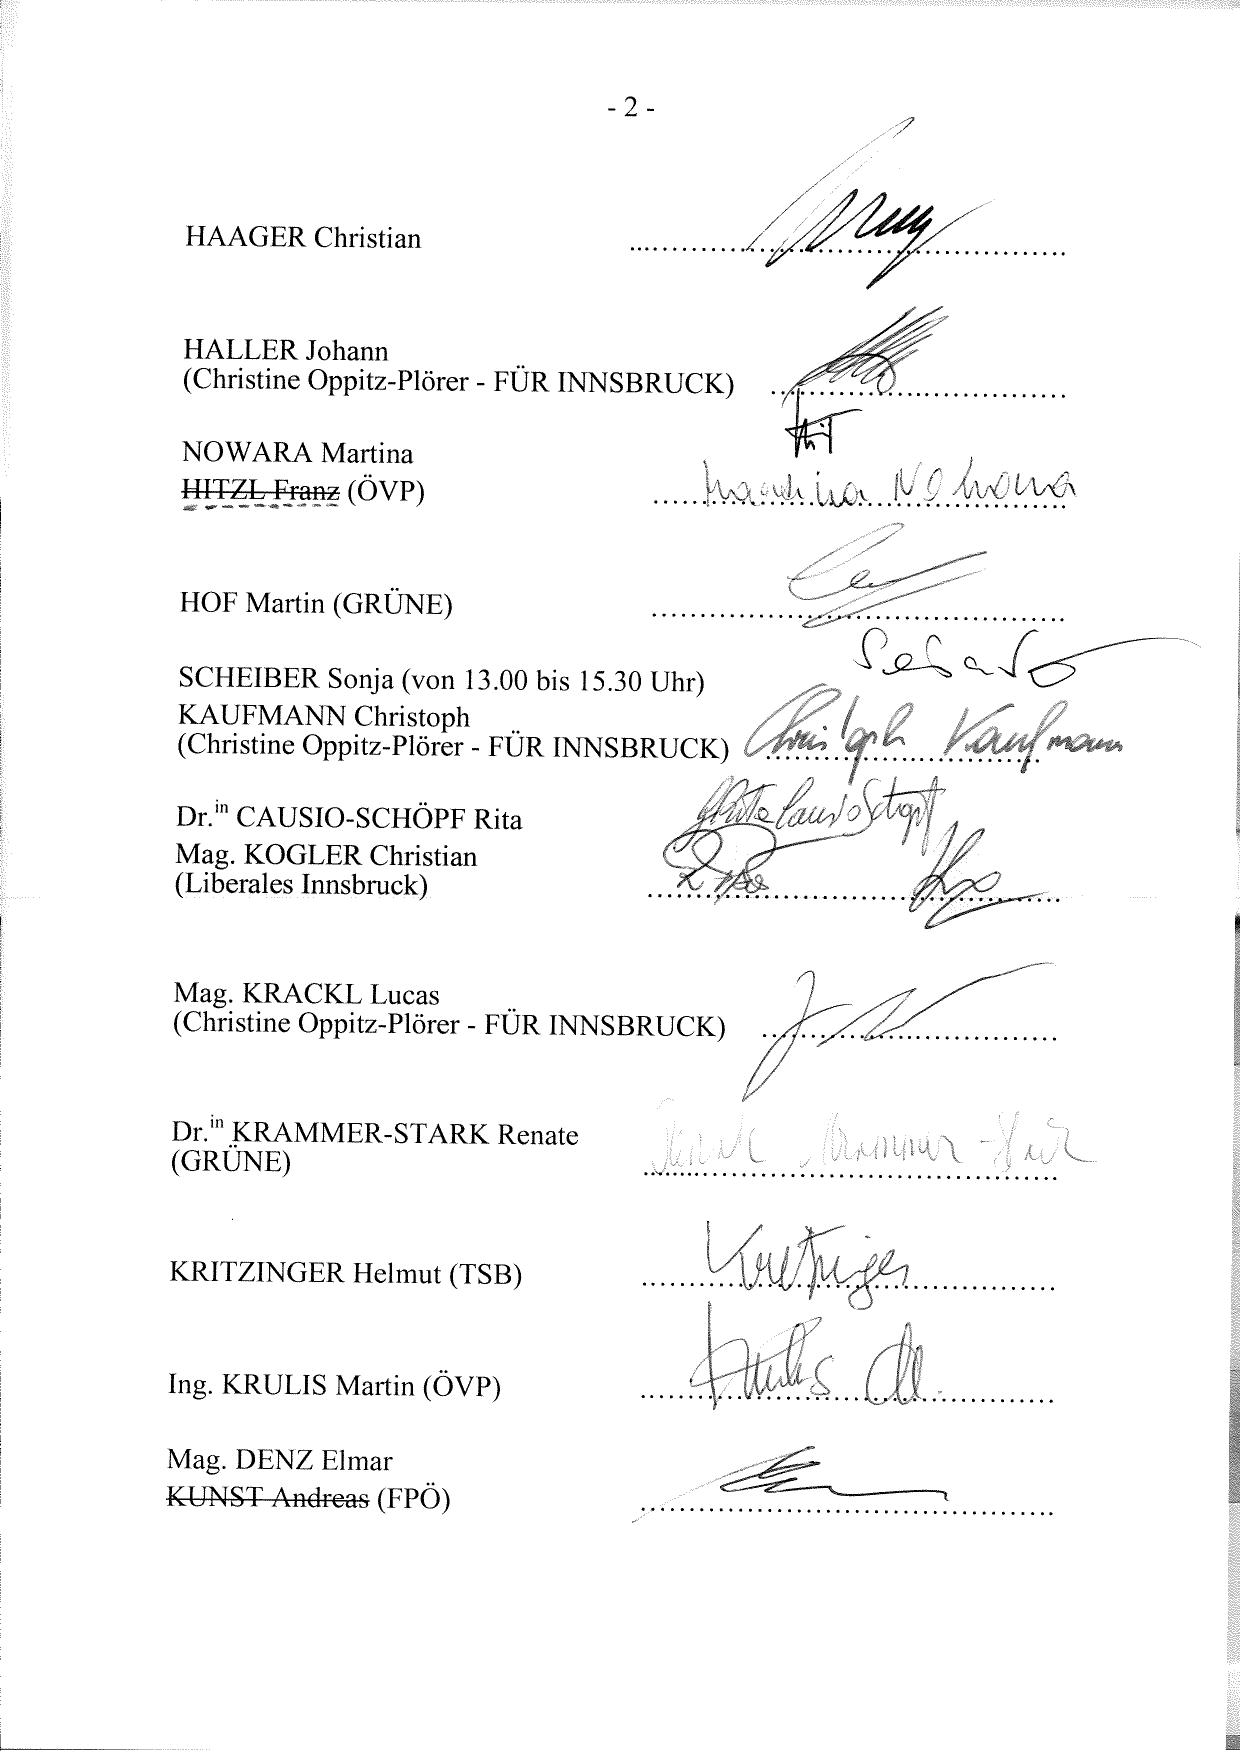 - 2 -
HAAGER Christian
HALLER Johann
(Christine Oppitz-Plörer - FÜR INNSBRUCK)
NOWARA Martina
HITZL Franz (ÖVP) Martina Nowara
HOF Martin (GRÜNE)
SCHEIBER Sonja (von 13.00 bis 15.30 Uhr)
KAUFMANN Christoph
(Christine Oppitz-Plörer - FÜR INNSBRUCK) Christoph Kaufmann
Dr.in CAUSIO-SCHÖPF Rita
Mag. KOGLER Christian
(Liberales Innsbruck)
Mag. KRACKL Lucas
(Christine Oppitz-Plörer - FÜR INNSBRUCK)
Dr.in KRAMMER-STARK Renate
(GRÜNE)
KRITZINGER Helmut (TSB) Kritzinger
Ing. KRULIS Martin (ÖVP)
Mag. DENZ Elmar
KUNST Andreas (FPÖ)